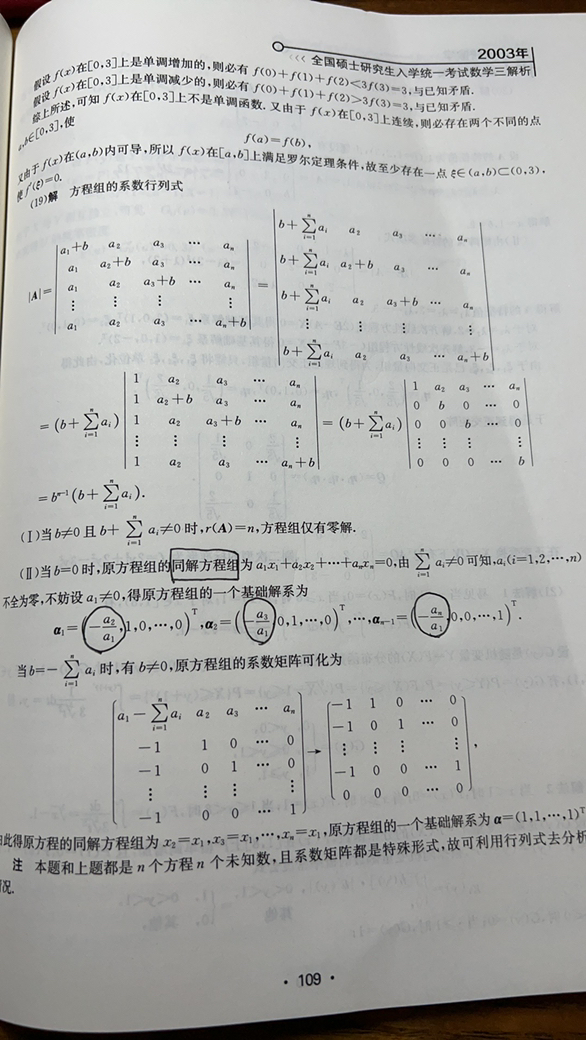 2003年
<<< 全国硕士研究生入学统一考试数学三解析
假设 f(x)在[0,3]上是单调增加的,则必有 f(0)+f(1)+f(2)<3f(3)=3,与已知矛盾.
假设 f(x)在[0,3]上是单调减少的,则必有 f(0)+f(1)+f(2)>3f(3)=3,与已知矛盾.
综上所述,可知 f(x)在[0,3]上不是单调函数. 又由于 f(x)在[0,3]上连续,则必存在两个不同的点
a,b∈[0,3],使
f(a)=f(b),
又由于 f(x)在(a,b)内可导,所以 f(x)在[a,b]上满足罗尔定理条件,故至少存在一点 ξ∈(a,b)⊂(0,3),
使 f′(ξ)=0.
(19)解 方程组的系数行列式
|A|= | a₁+b a₂ a₃ ⋯ aₙ ; a₁ a₂+b a₃ ⋯ aₙ ; a₁ a₂ a₃+b ⋯ aₙ ; ⋮ ⋮ ⋮ ⋮ ; a₁ a₂ a₃ ⋯ aₙ+b | = | b+∑ᵢ₌₁ⁿaᵢ a₂ a₃ ⋯ aₙ ; b+∑ᵢ₌₁ⁿaᵢ a₂+b a₃ ⋯ aₙ ; b+∑ᵢ₌₁ⁿaᵢ a₂ a₃+b ⋯ aₙ ; ⋮ ⋮ ⋮ ⋮ ; b+∑ᵢ₌₁ⁿaᵢ a₂ a₃ ⋯ aₙ+b |
=(b+∑ᵢ₌₁ⁿaᵢ) | 1 a₂ a₃ ⋯ aₙ ; 1 a₂+b a₃ ⋯ aₙ ; 1 a₂ a₃+b ⋯ aₙ ; ⋮ ⋮ ⋮ ⋮ ; 1 a₂ a₃ ⋯ aₙ+b | =(b+∑ᵢ₌₁ⁿaᵢ) | 1 a₂ a₃ ⋯ aₙ ; 0 b 0 ⋯ 0 ; 0 0 b ⋯ 0 ; ⋮ ⋮ ⋮ ⋮ ; 0 0 0 ⋯ b |
=bⁿ⁻¹(b+∑ᵢ₌₁ⁿaᵢ).
(Ⅰ)当 b≠0 且 b+∑ᵢ₌₁ⁿaᵢ≠0 时,r(A)=n,方程组仅有零解.
(Ⅱ)当 b=0 时,原方程组的同解方程组为 a₁x₁+a₂x₂+⋯+aₙxₙ=0,由 ∑ᵢ₌₁ⁿaᵢ≠0 可知,aᵢ(i=1,2,⋯,n)
不全为零,不妨设 a₁≠0,得原方程组的一个基础解系为
α₁=(−a₂/a₁,1,0,⋯,0)ᵀ,α₂=(−a₃/a₁,0,1,⋯,0)ᵀ,⋯,αₙ₋₁=(−aₙ/a₁,0,0,⋯,1)ᵀ.
当 b=−∑ᵢ₌₁ⁿaᵢ 时,有 b≠0,原方程组的系数矩阵可化为
( a₁−∑ᵢ₌₁ⁿaᵢ a₂ a₃ ⋯ aₙ ; −1 1 0 ⋯ 0 ; −1 0 1 ⋯ 0 ; ⋮ ⋮ ⋮ ⋮ ; −1 0 0 ⋯ 1 ) → ( −1 1 0 ⋯ 0 ; −1 0 1 ⋯ 0 ; ⋮ ⋮ ⋮ ⋮ ; −1 0 0 ⋯ 1 ; 0 0 0 ⋯ 0 ),
此得原方程的同解方程组为 x₂=x₁,x₃=x₁,⋯,xₙ=x₁,原方程组的一个基础解系为 α=(1,1,⋯,1)ᵀ
注 本题和上题都是 n 个方程 n 个未知数,且系数矩阵都是特殊形式,故可利用行列式去分析
况.
· 109 ·